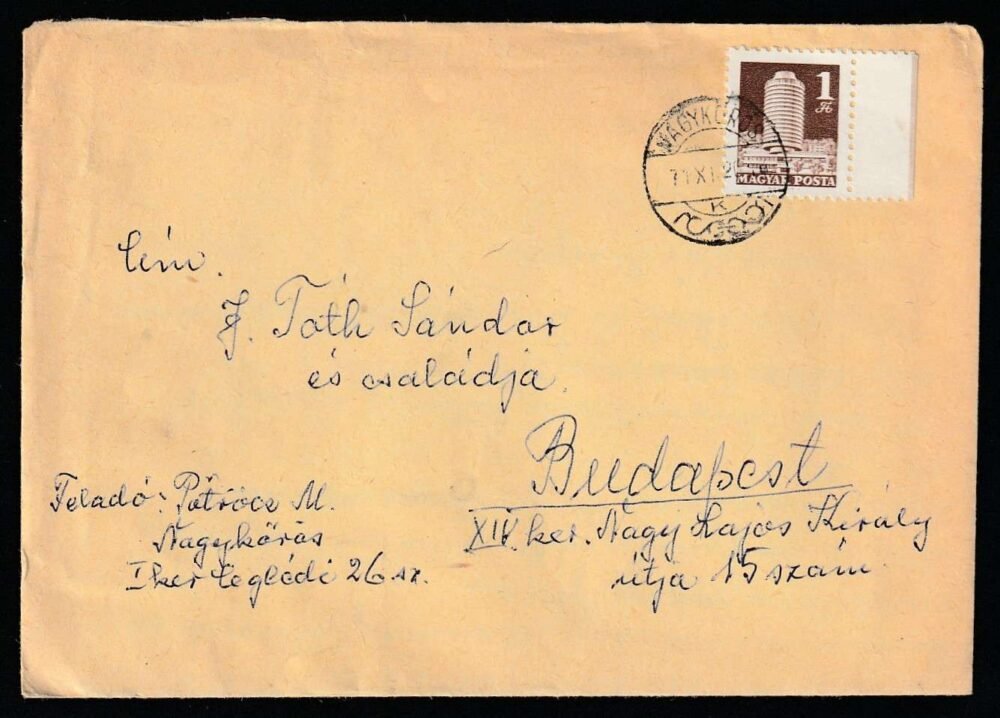 1
Ft
MAGYAR POSTA
NAGYKŐRÖS
71 XI. 2
K
Cím.
Tóth Sándor
és családja.
Budapest
XIV. ker. Nagy Lajos Király
útja 15 szám.
Feladó: Pőtröcz M.
Nagykőrös
I ker Ceglédi 26 sz.